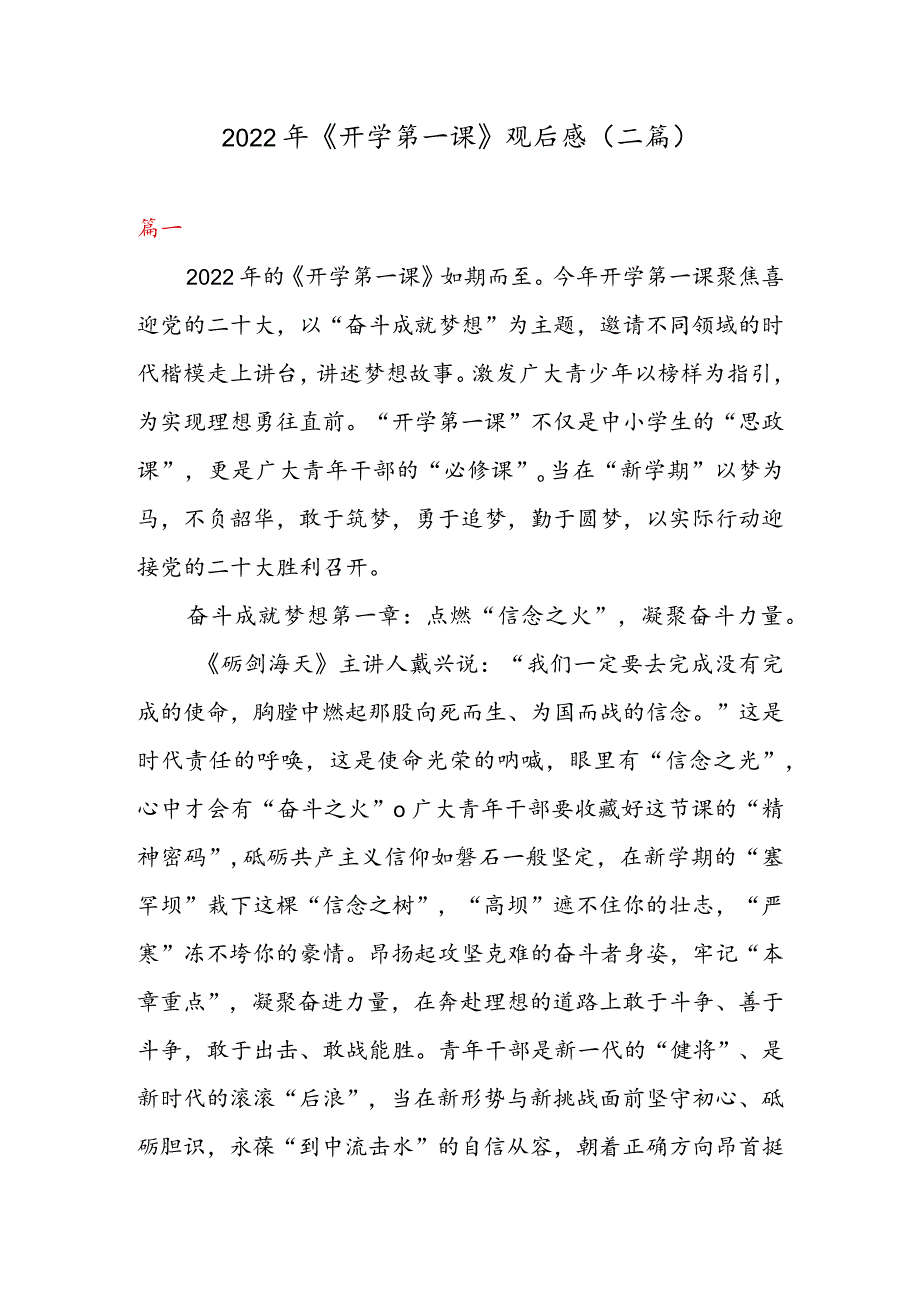 2022年《开学第一课》观后感（二篇）
篇一
2022年的《开学第一课》如期而至。今年开学第一课聚焦喜
迎党的二十大，以“奋斗成就梦想”为主题，邀请不同领域的时
代楷模走上讲台，讲述梦想故事。激发广大青少年以榜样为指引，
为实现理想勇往直前。“开学第一课”不仅是中小学生的“思政
课”，更是广大青年干部的“必修课”。当在“新学期”以梦为
马，不负韶华，敢于筑梦，勇于追梦，勤于圆梦，以实际行动迎
接党的二十大胜利召开。
奋斗成就梦想第一章：点燃“信念之火”，凝聚奋斗力量。
《砺剑海天》主讲人戴兴说：“我们一定要去完成没有完
成的使命，胸膛中燃起那股向死而生、为国而战的信念。”这是
时代责任的呼唤，这是使命光荣的呐喊，眼里有“信念之光”，
心中才会有“奋斗之火”o广大青年干部要收藏好这节课的“精
神密码”,砥砺共产主义信仰如磐石一般坚定，在新学期的“塞
罕坝”栽下这棵“信念之树”，“高坝”遮不住你的壮志，“严
寒”冻不垮你的豪情。昂扬起攻坚克难的奋斗者身姿，牢记“本
章重点”，凝聚奋进力量，在奔赴理想的道路上敢于斗争、善于
斗争，敢于出击、敢战能胜。青年干部是新一代的“健将”、是
新时代的滚滚“后浪”，当在新形势与新挑战面前坚守初心、砥
砺胆识，永葆“到中流击水”的自信从容，朝着正确方向昂首挺